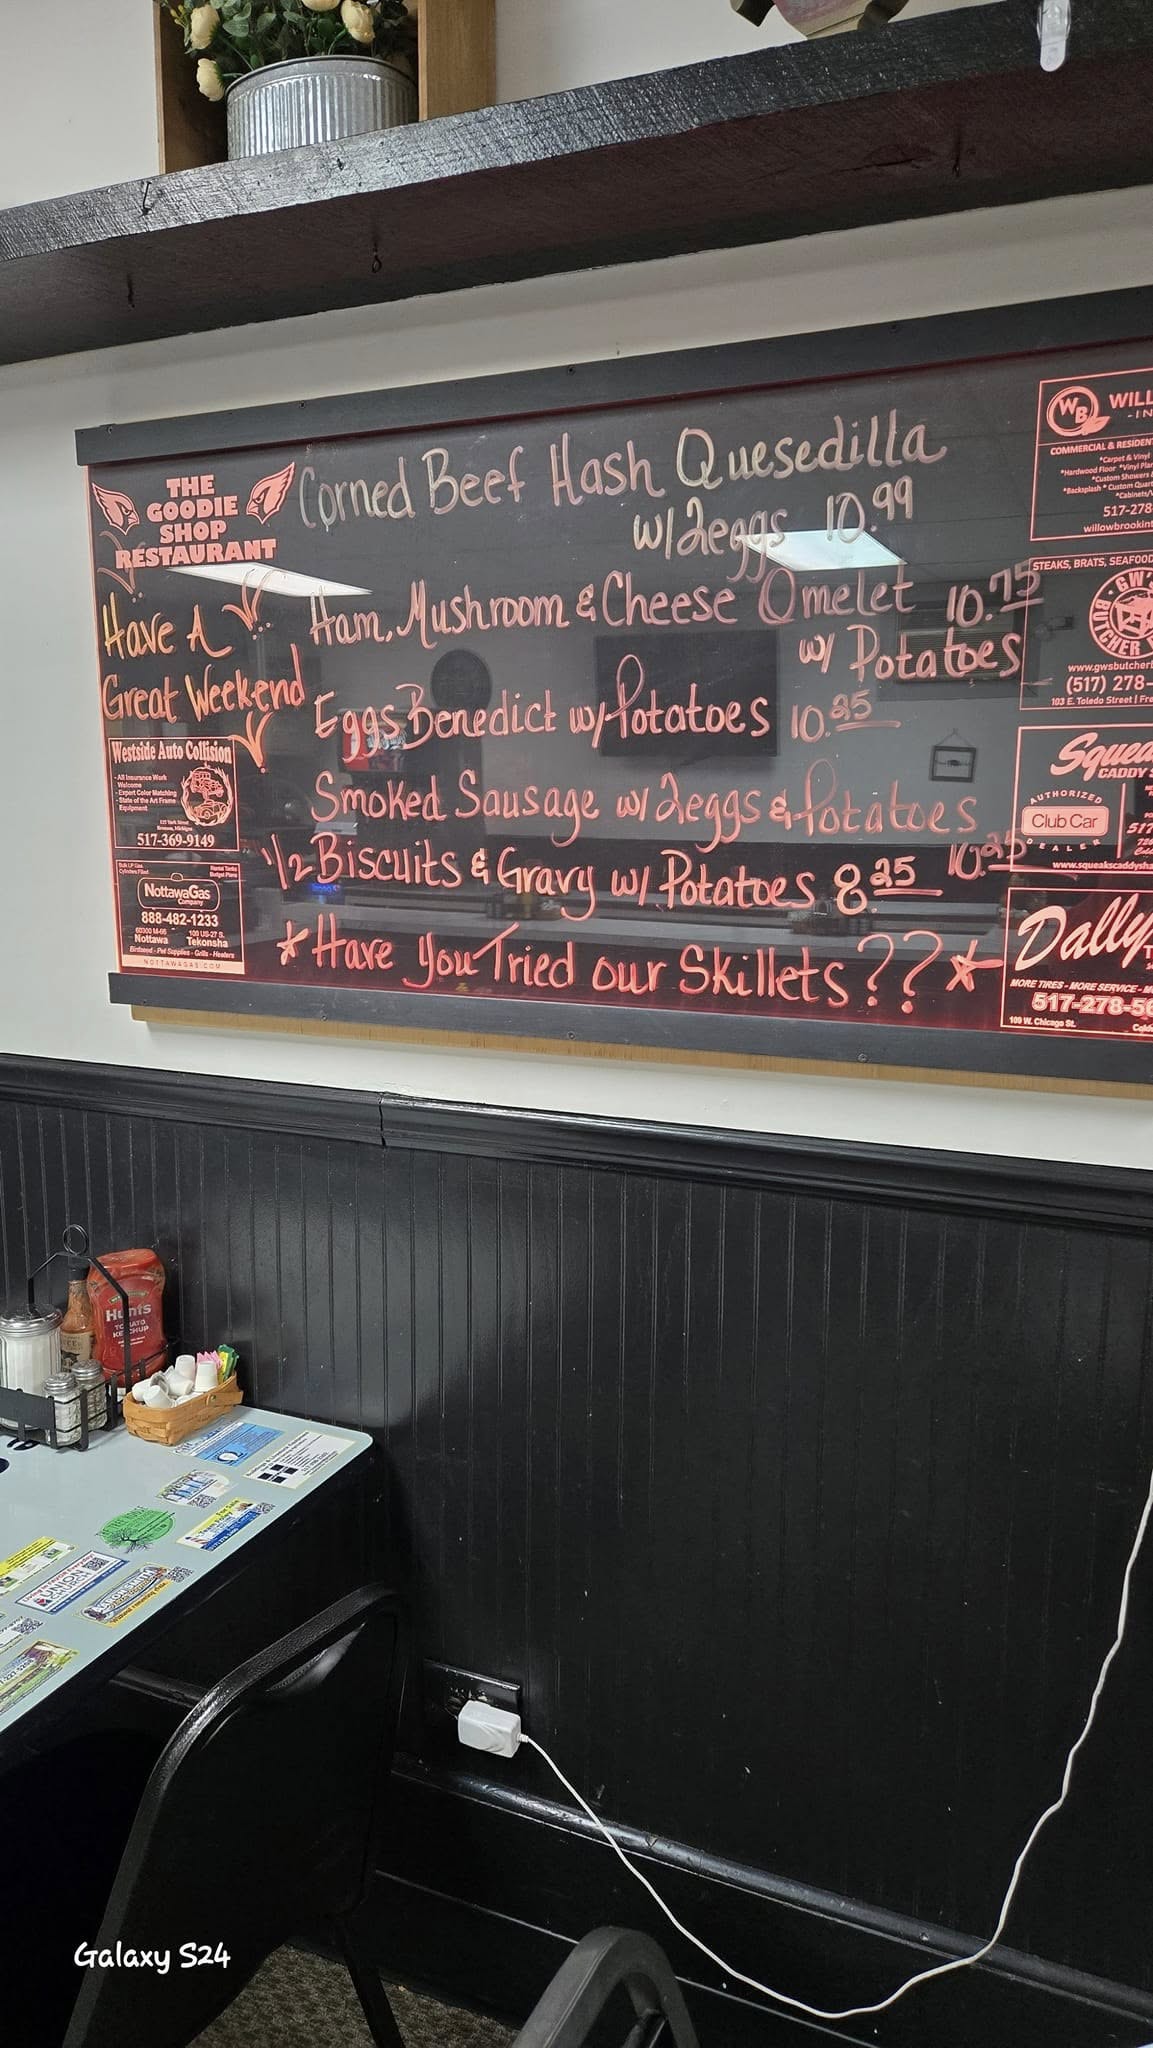 THE
GOODIE
SHOP
RESTAURANT
Have A
Great Weekend
Westside Auto Collision
- All Insurance Work
Welcome
- Expert Color Matching
- State of the Art Frame
Equipment
517-369-9149
NottawaGas
Company
888-482-1233
Nottawa
Tekonsha
Birdseed - Pet Supplies - Grills - Heaters
NOTTAWAGAS.COM
Corned Beef Hash Quesedilla
w/2eggs 10.99
Ham, Mushroom & Cheese Omelet 10.75
w/ Potatoes
Eggs Benedict w/Potatoes 10.25
Smoked Sausage w/ 2eggs & Potatoes
10.25
1/2 Biscuits & Gravy w/ Potatoes 8.25
* Have You Tried our Skillets?? *
WB
WILL
COMMERCIAL & RESIDENT
*Carpet & Vinyl
*Hardwood Floor *Vinyl Pla
*Custom Showers
*Backsplash * Custom Quart
*Cabinets/
517-278
willowbrookint
STEAKS, BRATS, SEAFOOD
GW'S
BUTCHER
www.gwsbutcher
(517) 278-
103 E. Toledo Street | Fre
Squea
CADDY S
AUTHORIZED
Club Car
DEALER
517
www.squeakscaddysha
Dally
MORE TIRES - MORE SERVICE - M
517-278-56
109 W. Chicago St.
Hunts
TOMATO
KETCHUP
UNION
Galaxy S24